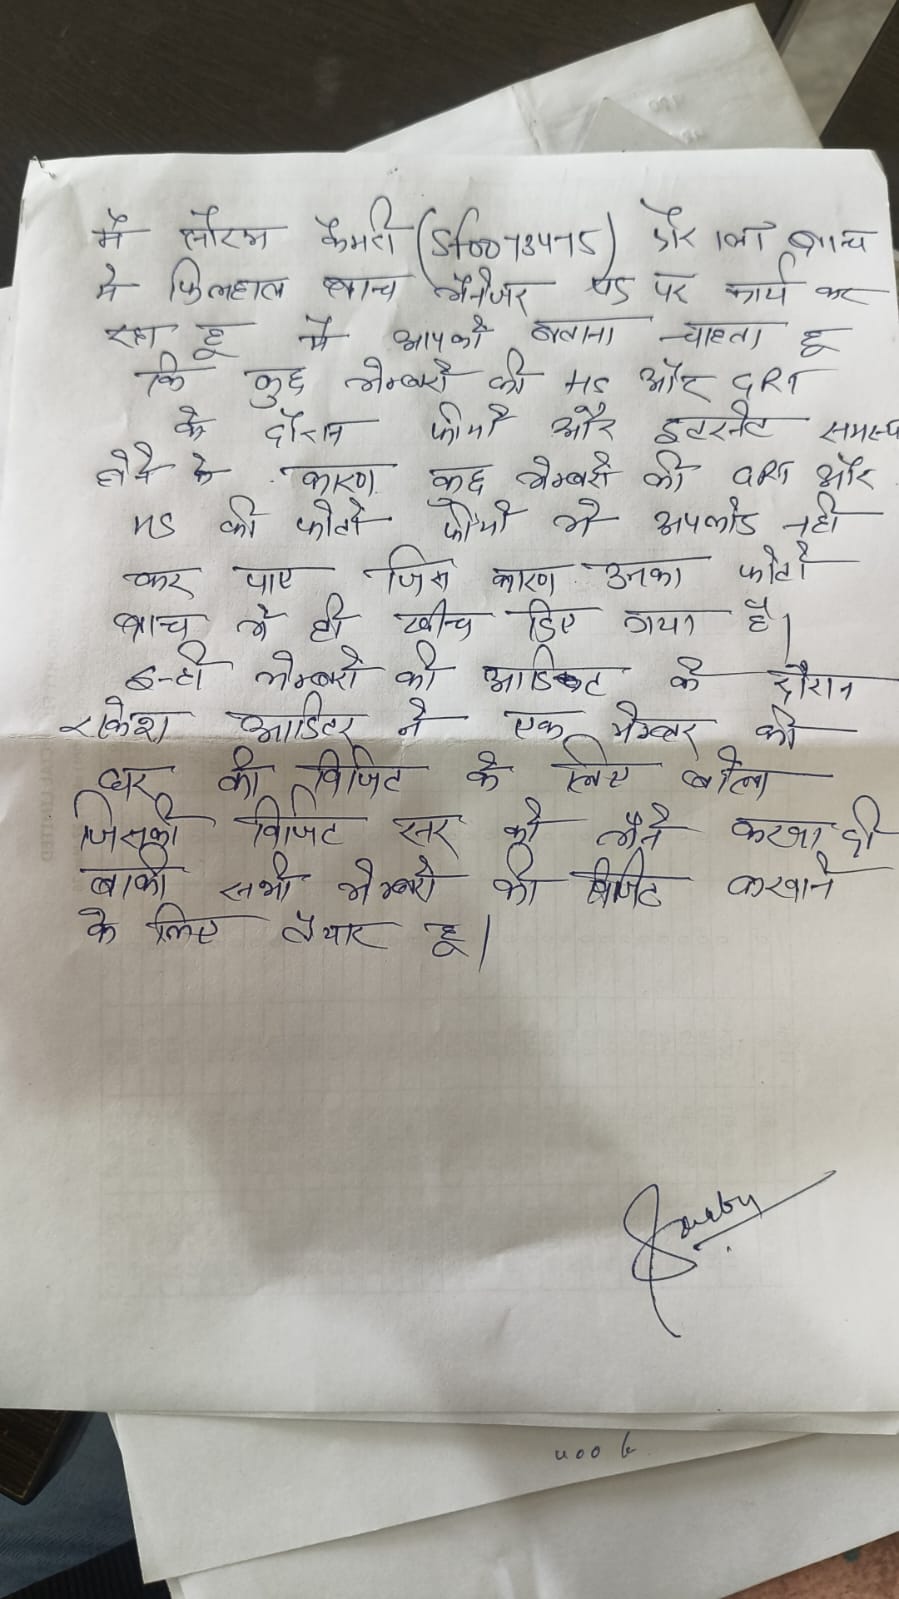 मैं सौरभ कैमटी (Sf0073475) ब्रांच
मे फिलहाल ब्रान्च मैनेजर पद पर कार्य कर
रहा हू मैं आपको बताना चाहता हू
कि कुछ मेम्बरो की HS और GRT
के दौरान फीमो और इटरनेट समस्या
होने के कारण कुछ मेम्बरो की GRT और
HS की फोटो फीमो मे अपलोड नही
कर पाए जिस कारण उनका फोटो
ब्रान्च मे ही खीच दिए गया है।
इन्ही मेम्बरो की आडिट के दौरान
राकेश आडिटर ने एक मेम्बर की
घर की विजिट के लिए बोला
जिसकी विजिट सर को मैने करवा दी
बाकी सभी मेम्बरो की विजिट करवाने
के लिए तैयार हू।